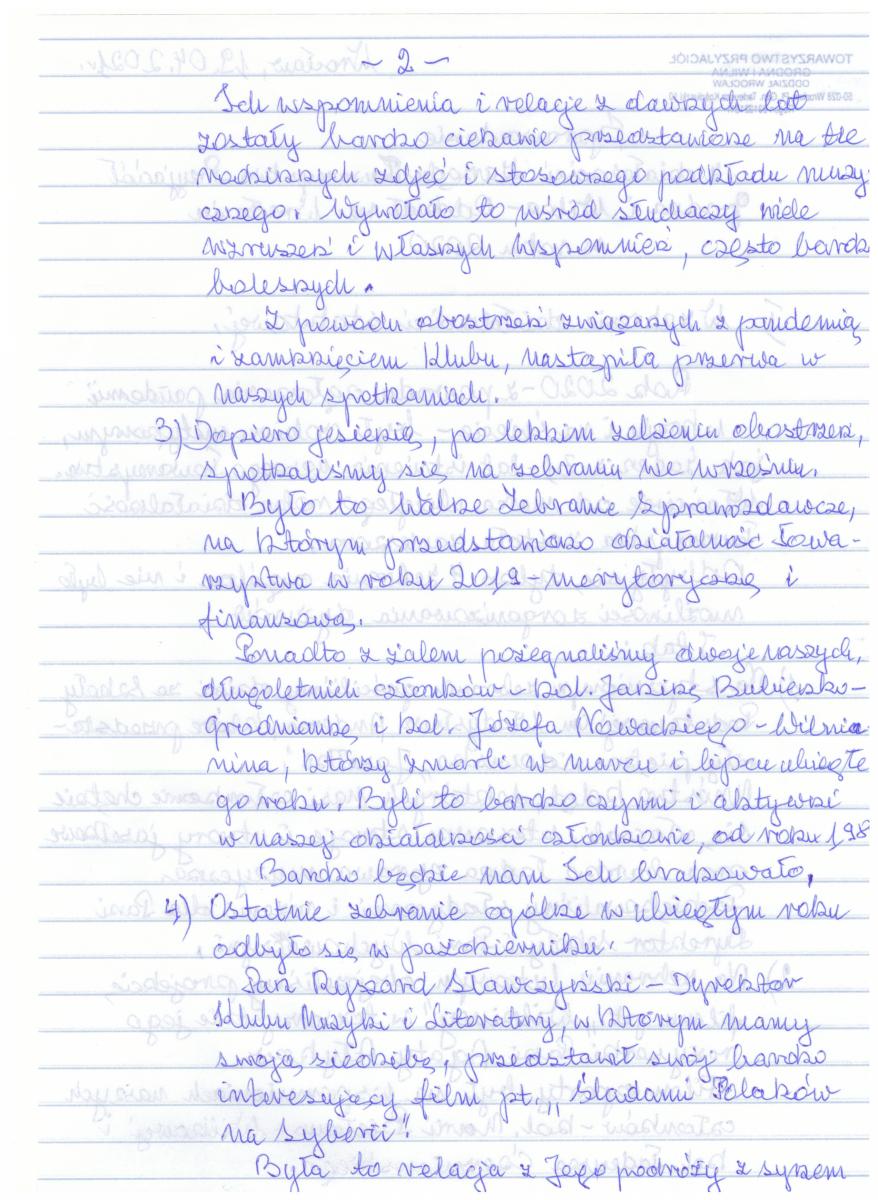 ~ 2 ~
Ich wspomnienia i relacje z dawnych lat
zostały bardzo ciekawie przedstawione na tle
rodzinnych zdjęć i stosownego podkładu muzy
cznego. Wywołało to wśród słuchaczy wiele
wzruszeń i własnych wspomnień, często bardz
bolesnych.
Z powodu obostrzeń związanych z pandemią
i zamknięciem Klubu, nastąpiła przerwa w
naszych spotkaniach.
3) Dopiero jesienią, po lekkim zelżeniu obostrzeń,
spotkaliśmy się na zebraniu we wrześniu.
Było to Walne Zebranie Sprawozdawcze,
na którym przedstawiono działalność Towa-
rzystwa w roku 2019 - merytoryczną i
finansową.
Ponadto z żalem pożegnaliśmy dwoje naszych,
długoletnich członków - kol. Janinę Bubieńko-
grodniankę i kol. Józefa Nowackiego - Wilnia
nina, którzy zmarli w marcu i lipcu ubiegłe
go roku. Byli to bardzo czynni i aktywni
w naszej działalności członkowie, od roku 198
Bardzo będzie nam Ich brakowało,
4) Ostatnie zebranie ogólne w ubiegłym roku
odbyło się w październiku.
Pan Ryszard Sławczyński - Dyrektor
Klubu Muzyki i Literatury, w którym mamy
swoją siedzibę, przedstawił swój bardzo
interesujący film pt. „Śladami Polaków
na Syberii".
Była to relacja z Jego podróży z synem